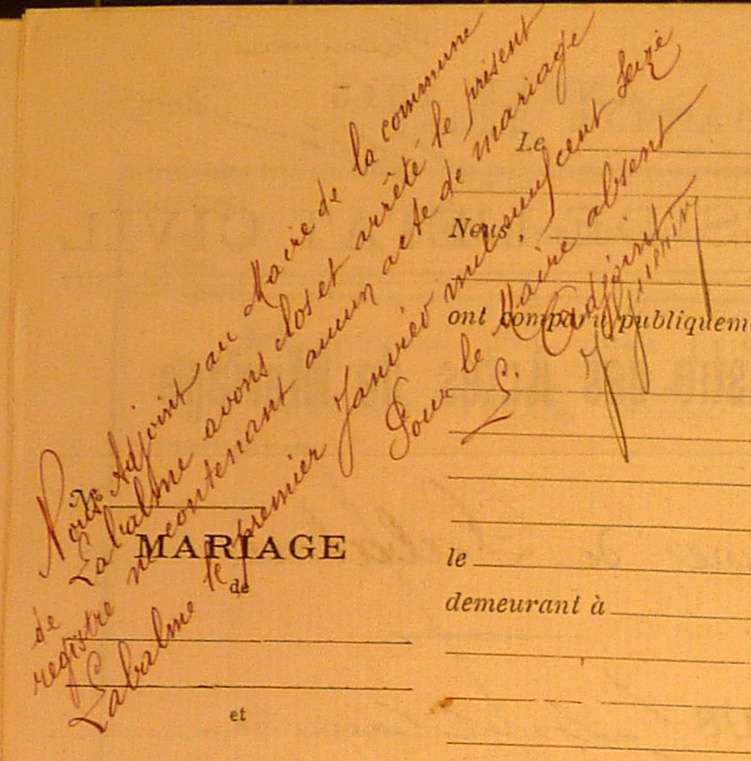 Nous Adjoint au Maire de la commune
de Labalme avons clos et arrêté le présent
registre ne contenant aucun acte de mariage
Labalme le premier Janvier mil neuf cent seize
Pour le Maire absent
L. Adjoint
Le
Nous,
ont comparu publiquem
No
MARIAGE
de
et
le
demeurant à